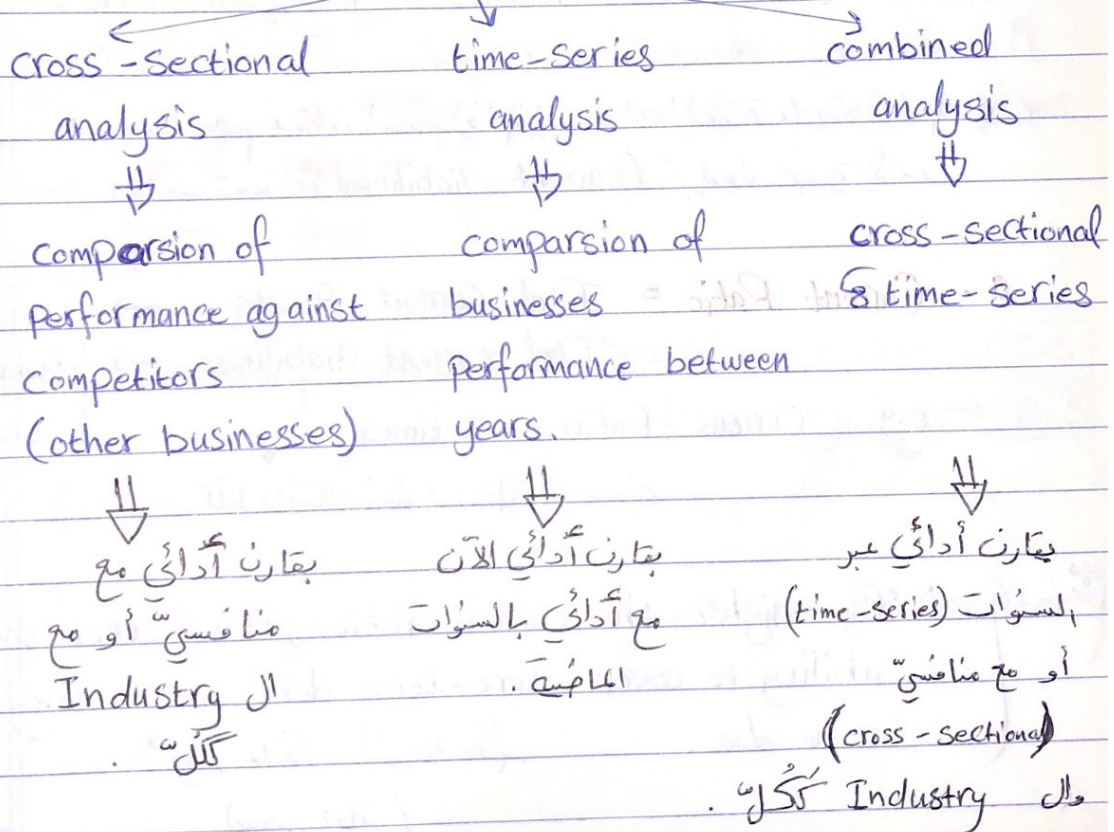 cross-sectional
analysis
comparsion of
performance against
competitors
(other businesses)
بقارن أدائي مع
منافسيّ أو مع
ال Industry
ككلّ .
time-series
analysis
comparsion of
businesses
performance between
years.
بقارن أدائي الآن
مع أدائي بالسنوات
الماضية .
combined
analysis
cross-sectional
& time-series
بقارن أدائي عبر
السنوات (time-series)
أو مع منافسيّ
(cross-sectional)
وال Industry ككلّ .